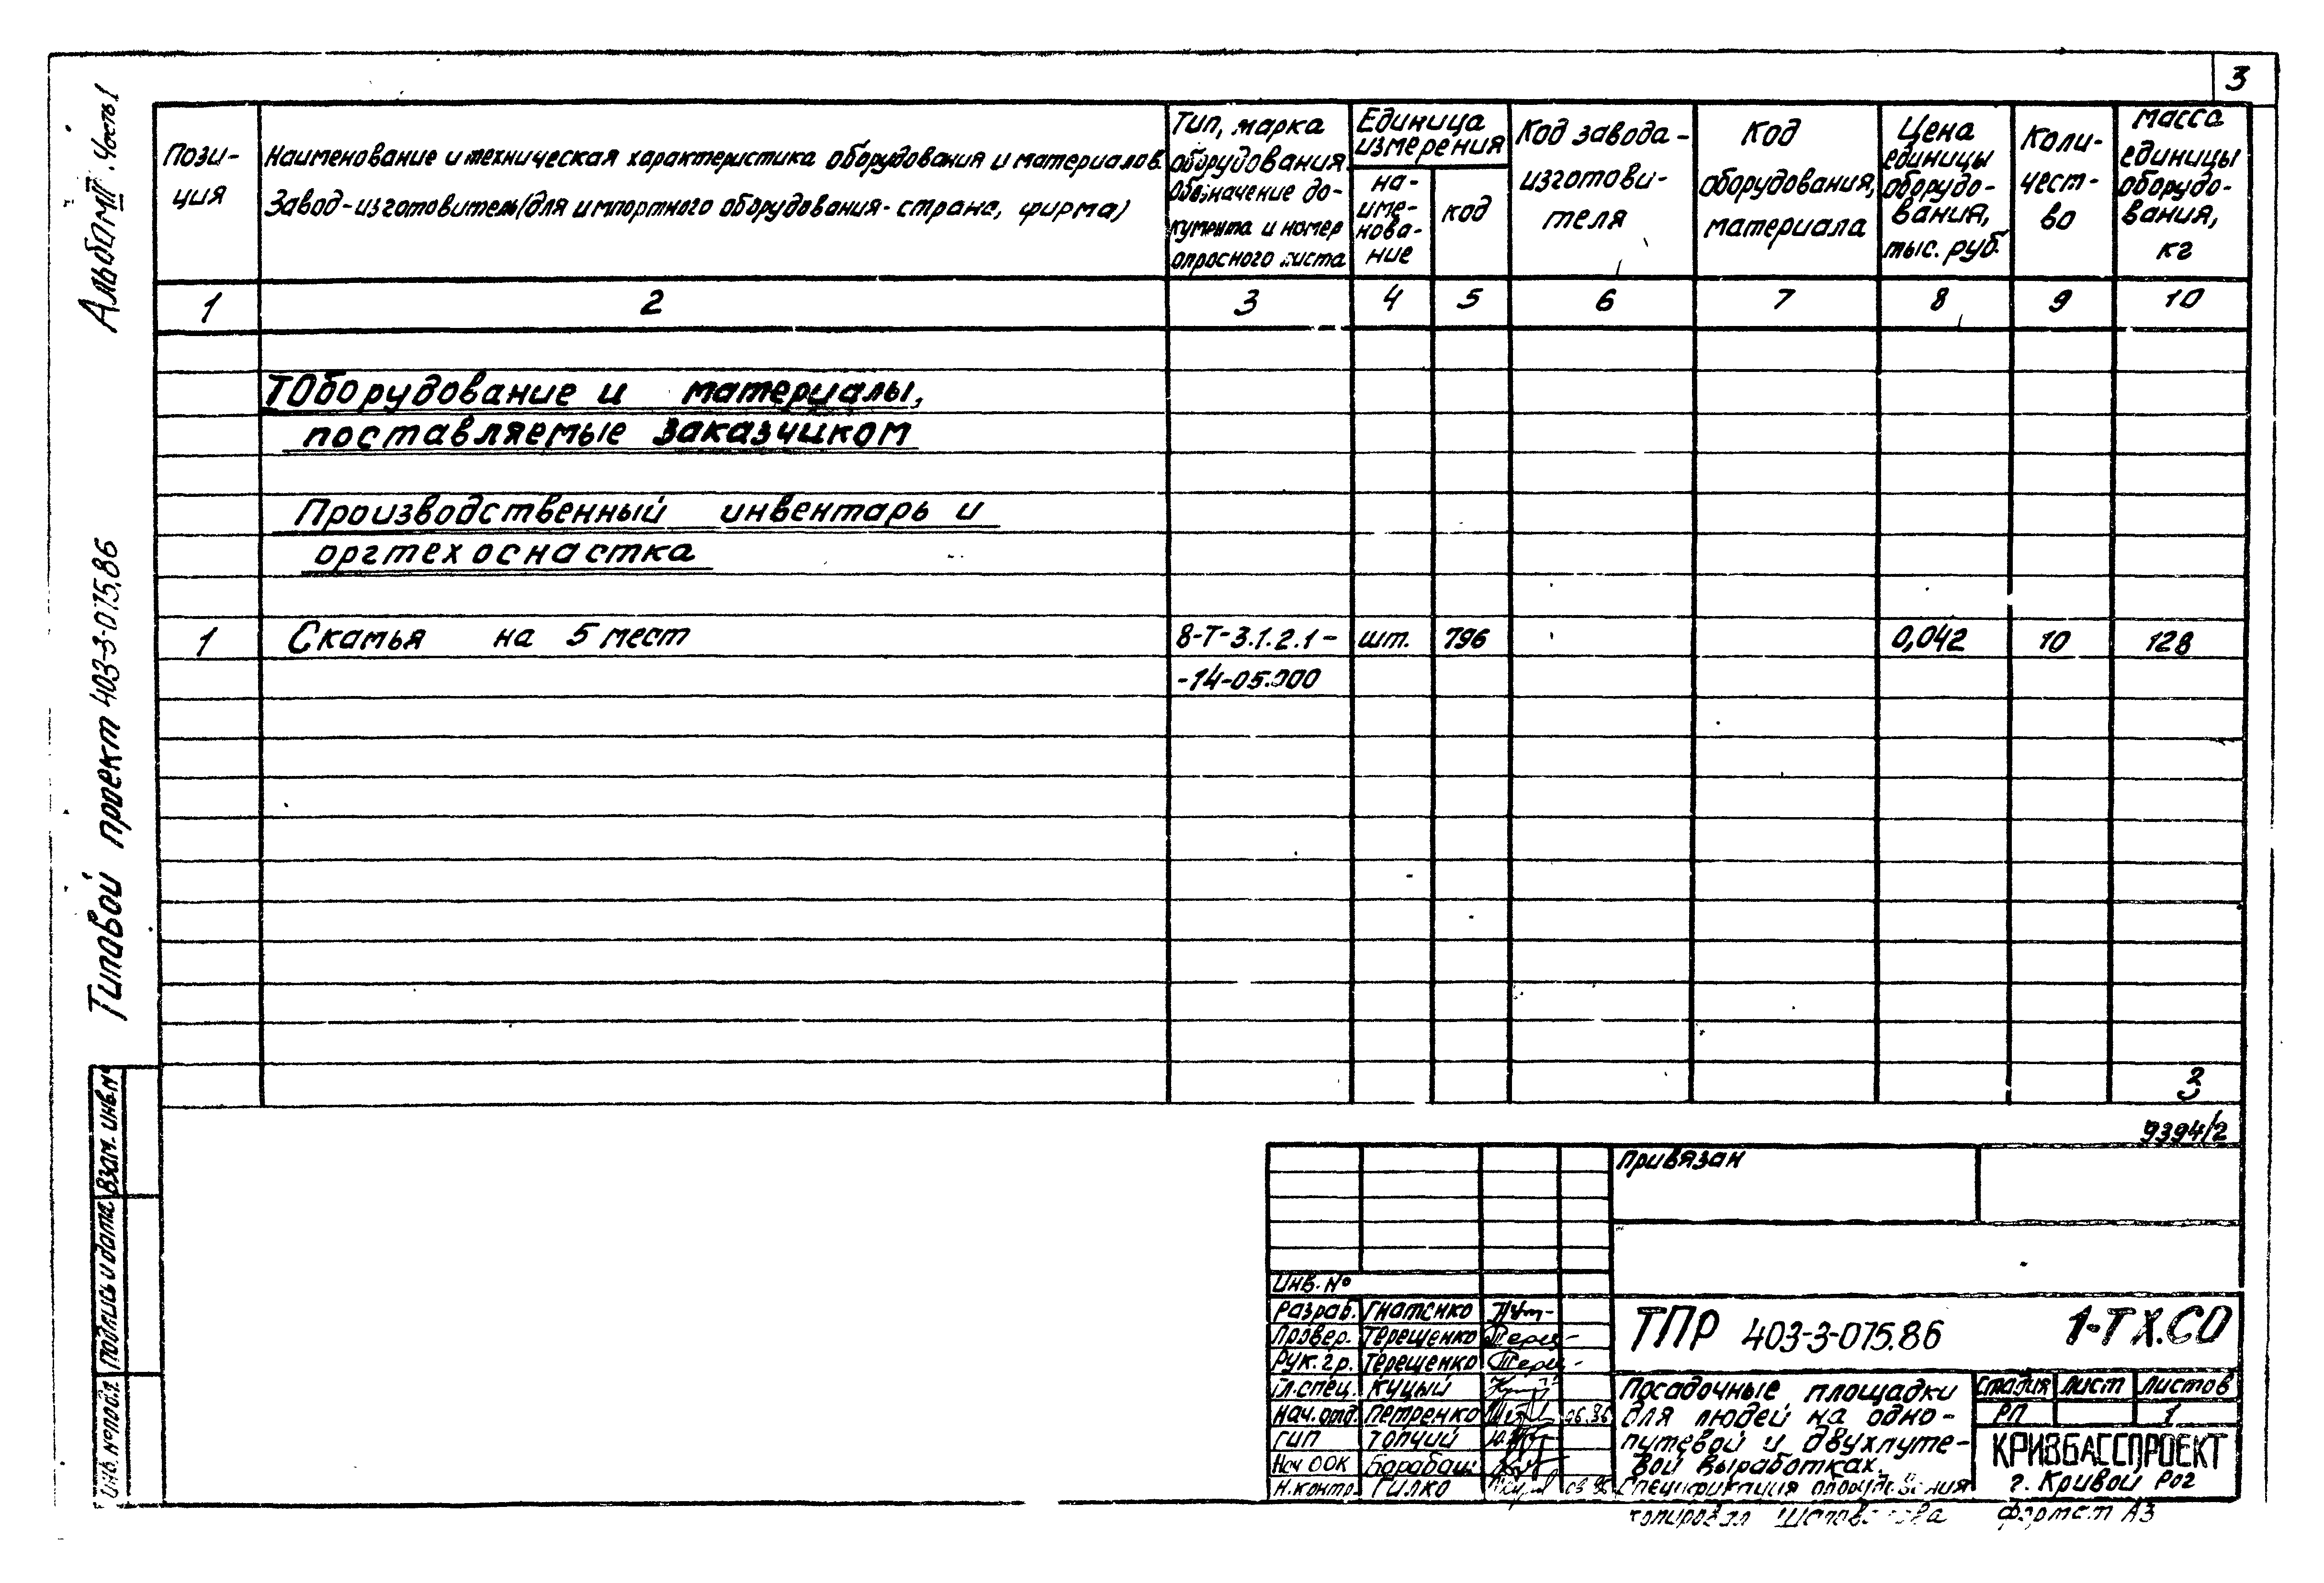 3
Альбом III. Часть 1
Типовой проект 403-3-075.86
Пози-
ция
Наименование и техническая характеристика оборудования и материалов.
Завод-изготовитель (для импортного оборудования - страна, фирма)
Тип, марка
оборудования.
Обозначение до-
кумента и номер
опросного листа
Единица
измерения
на-
име-
нова-
ние
код
Код завода-
изготови-
теля
Код
оборудования,
материала
Цена
единицы
оборудо-
вания,
тыс. руб.
Коли-
чест-
во
Масса
единицы
оборудо-
вания,
кг
1 2 3 4 5 6 7 8 9 10
Оборудование и материалы,
поставляемые заказчиком
Производственный инвентарь и
оргтехоснастка
1 Скамья на 5 мест 8-Т-3.1.2.1- шт. 796 0,042 10 128
-14-05.000
3
9394/2
Привязан
Инв. №
Разраб. Гнатенко
Провер. Терещенко
Рук. гр. Терещенко
Гл. спец. Куцый
Нач. отд. Петренко 06.86
ГИП Топчий
Нач ООК Барабаш
Н. контр. Гилко
ТПР 403-3-075.86 1-ТХ.СО
Посадочные площадки
для людей на одно-
путевой и двухпуте-
вой выработках.
Спецификация оборудования
Стадия Лист Листов
РП 1
КРИВБАССПРОЕКТ
г. Кривой Рог
копировал формат А3
Взам. инв. №
Подпись и дата
Инв. № подл.